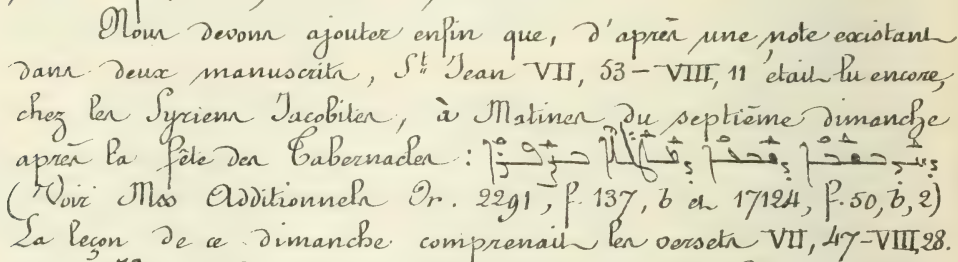 Nous devons ajouter enfin que, d'après une note existant
dans deux manuscrits, St Jean VII, 53–VIII, 11 était lu encore,
chez les Syriens Jacobites, à Matines du septième dimanche
après la fête des Tabernacles :
(Voir Mss Additionnels Or. 2291, f. 137, b et 17124, f. 50, b, 2)
La leçon de ce dimanche comprenait les versets VII, 47–VIII, 28.